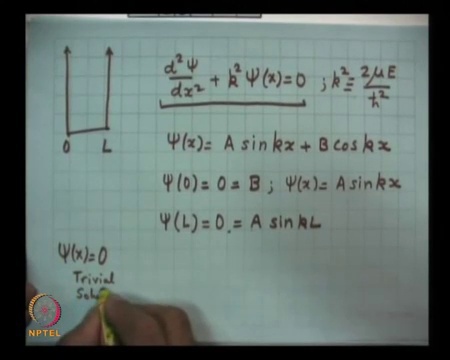 d²Ψ/dx² + k²Ψ(x)=0 ; k² ≡ 2μE/ħ²
0 L
Ψ(x)= A sinkx + B coskx
Ψ(0)=0=B ; Ψ(x)= A sinkx
Ψ(L)=0.= A sinkL
Ψ(x)=0
Trivial
NPTEL